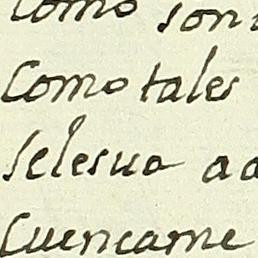 como son
Como tales
selesua ad
Cuencame